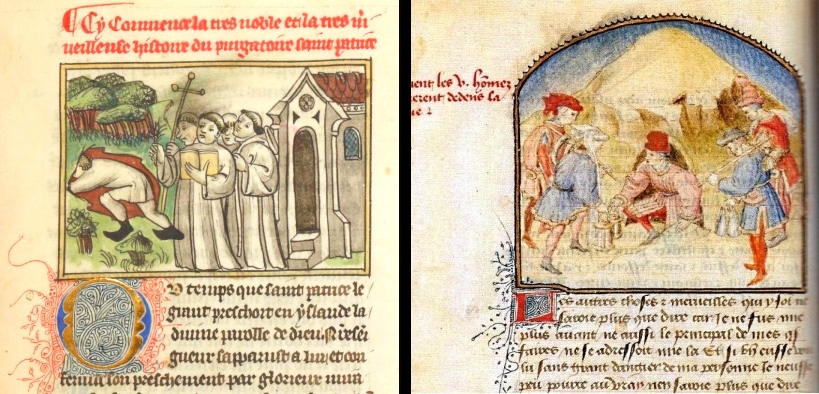 Cy commence la tres noble et la tres m
veilleuse histoire du purgatoire saint patrice
U temps que saint patrice le
grant preschoit en yslande la
divine parolle de dieu. Nresei
gneur sapparust a luy et con
ferma son preschement par glorieux mira
ment les v. hommez
rerent dedens la
ie
es autres choses z merveilles qui y sont ne
savoie plus que dire car Je ne fus nne
plus avant ne aussi le principal de mes af
faires ne se adressoit mie la Et si Jy eusse
lu sans grant dangier de ma personne le neusse
peu pource au vray nen savoie plus que dire